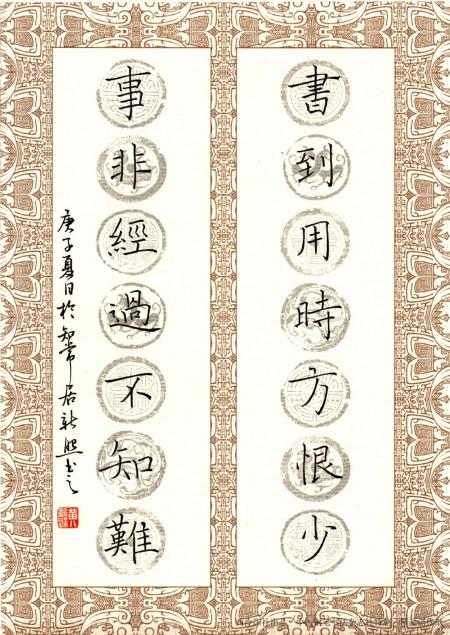 書到用時方恨少
事非經過不知難
庚子夏日於知常居新照書之